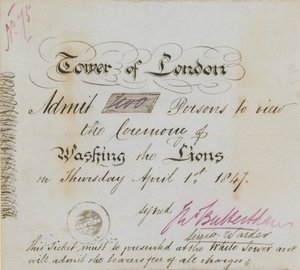 No. 75
Tower of London
Admit two Persons to view
the Ceremony of
Washing the Lions
on Thursday April 1st 1847.
signed
Senior Warder
This Ticket must be presented at the White Tower and
will admit the bearers free of all charges